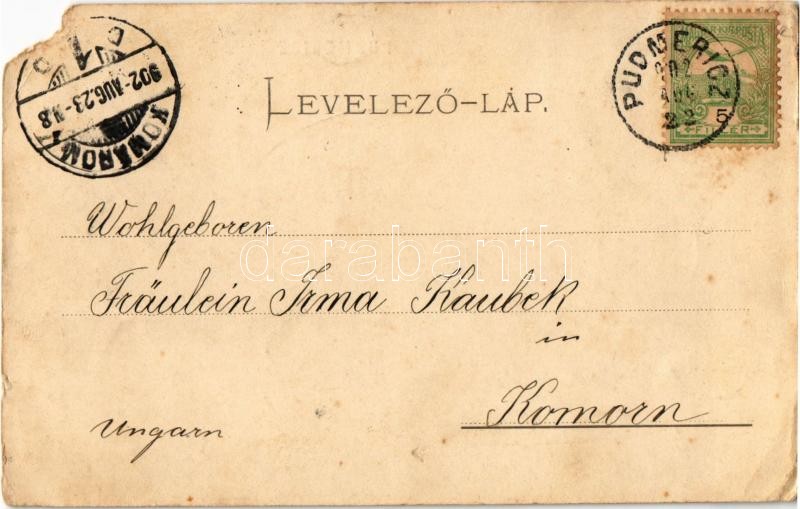 KOMÁROM
902-AUG.23-N.8
LEVELEZŐ-LAP.
PUDMERICZ
902
AUG
22
5
FILLÉR
Wohlgeboren
darabanth
Fräulein Irma Kaubek
in
Komorn
Ungarn